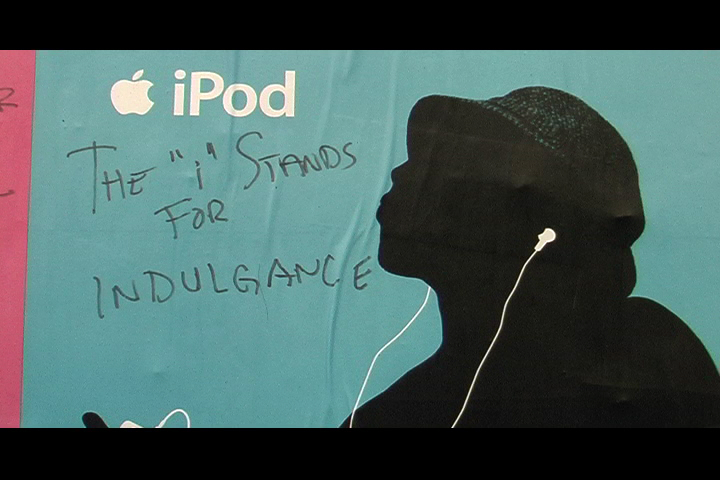 iPod
THE "i" STANDS
FOR
INDULGANCE